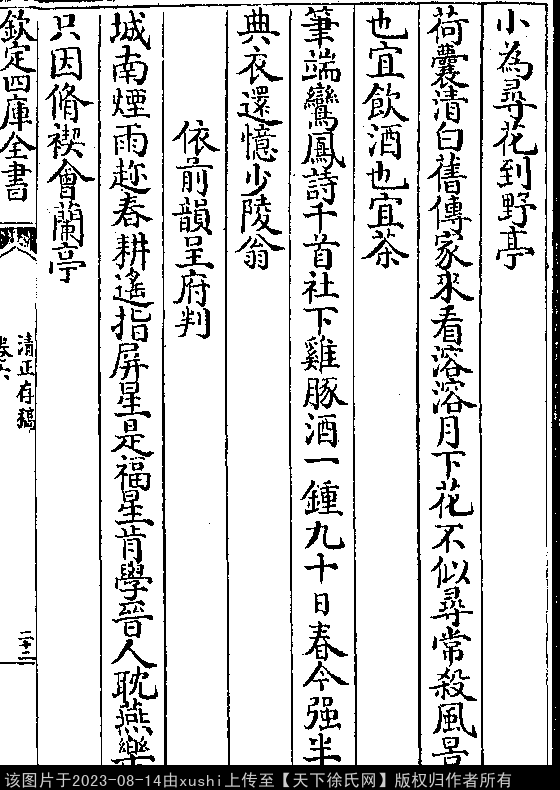 小為尋花到野亭
荷囊清白舊傳家來看溶溶月下花不似尋常殺風景
也宜飲酒也宜茶
筆端鸞鳳詩千首社下雞豚酒一鍾九十日春今强半
典衣還憶少陵翁
依前韻呈府判
城南煙雨趂春耕遙指屏星是福星肯學晉人耽燕樂
只因脩禊會蘭亭
欽定四庫全書
清正存稿
卷六
二十二
该图片于2023-08-14由xushi上传至【天下徐氏网】版权归作者所有